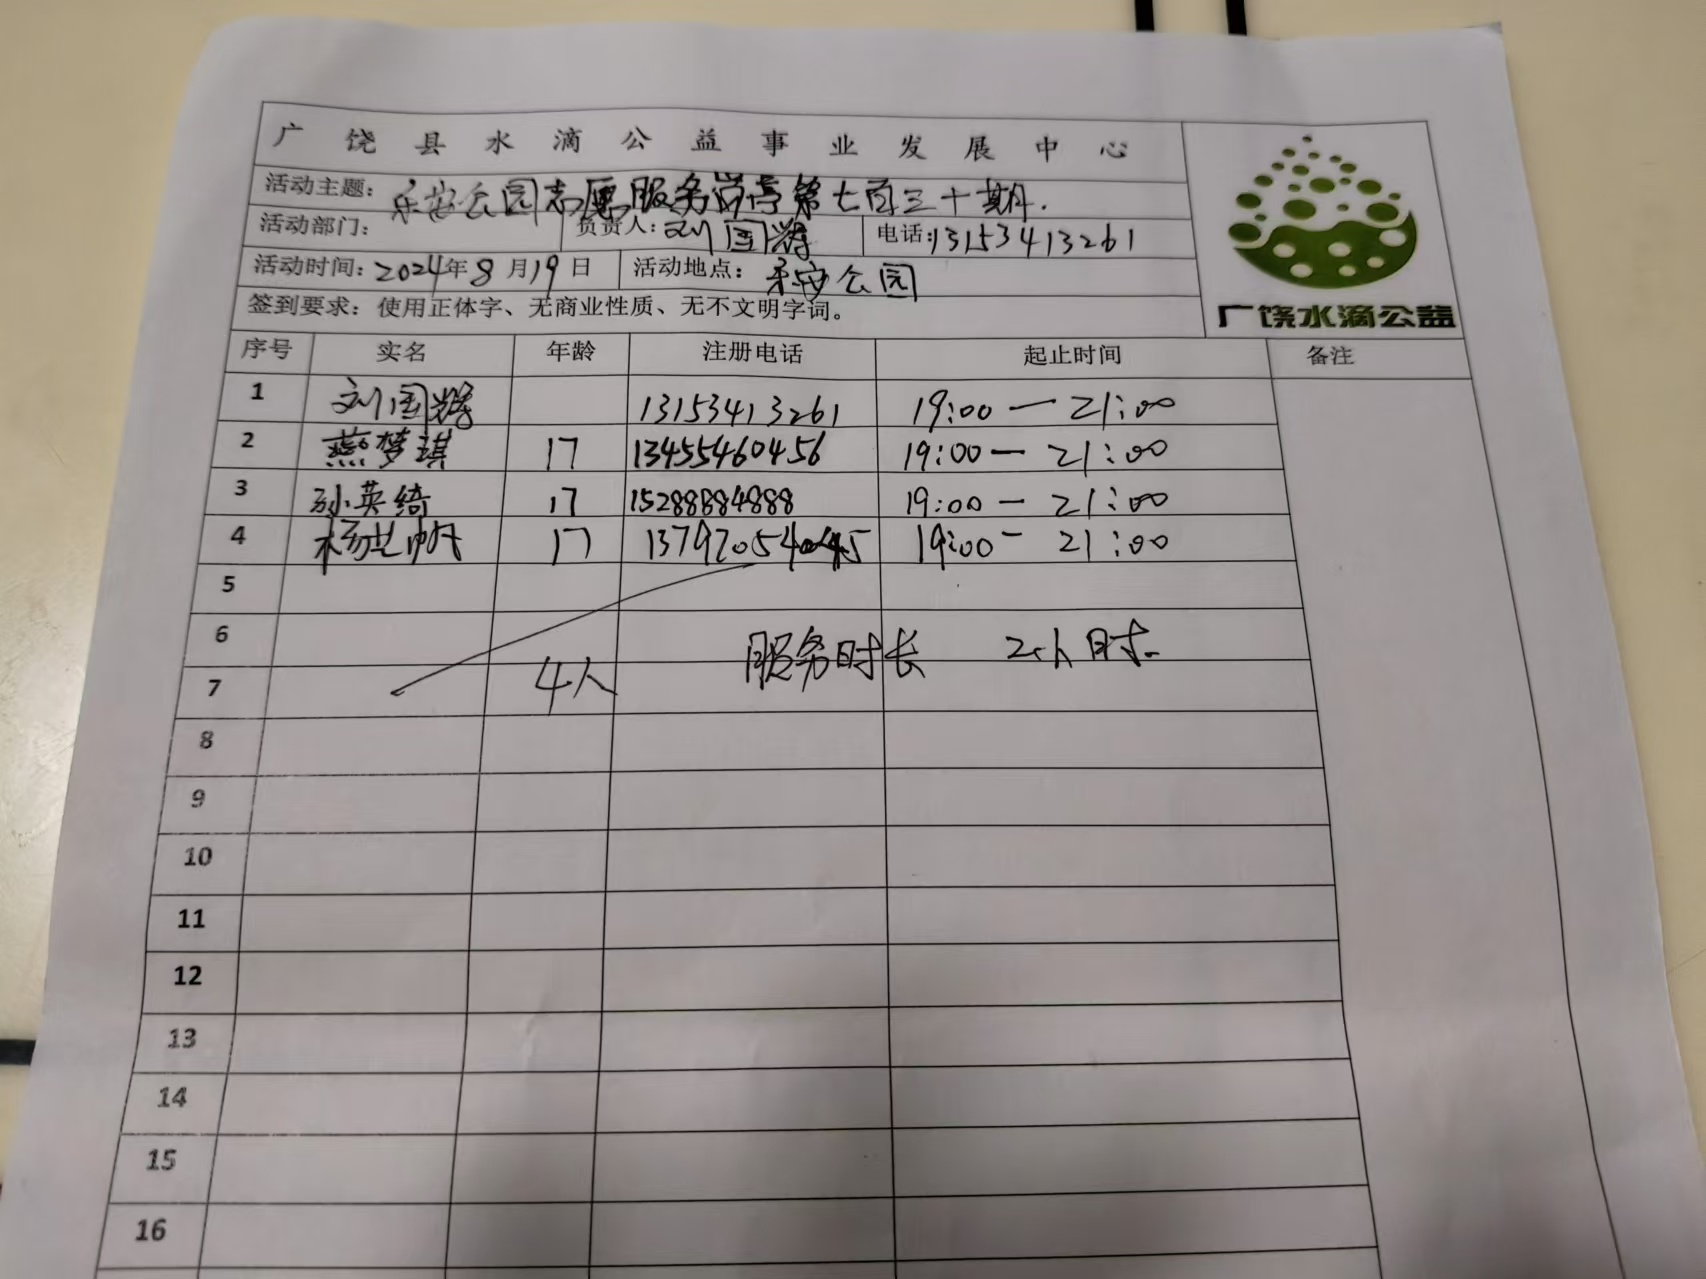 广饶县水滴公益事业发展中心
活动主题：乐安公园志愿服务岗亭第七百三十期.
活动部门： 负责人：刘国辉 电话：13153413261
活动时间：2024年8月19日 活动地点：乐安公园
签到要求：使用正体字、无商业性质、无不文明字词。
广饶水滴公益
序号 实名 年龄 注册电话 起止时间 备注
1 刘国辉 13153413261 19:00 — 21:00
2 燕梦琪 17 13455460456 19:00 — 21:00
3 孙英绮 17 15288884888 19:00 — 21:00
4 杨艺帆 17 13792054045 19:00 - 21:00
5
6 服务时长 2小时.
7 4人
8
9
10
11
12
13
14
15
16